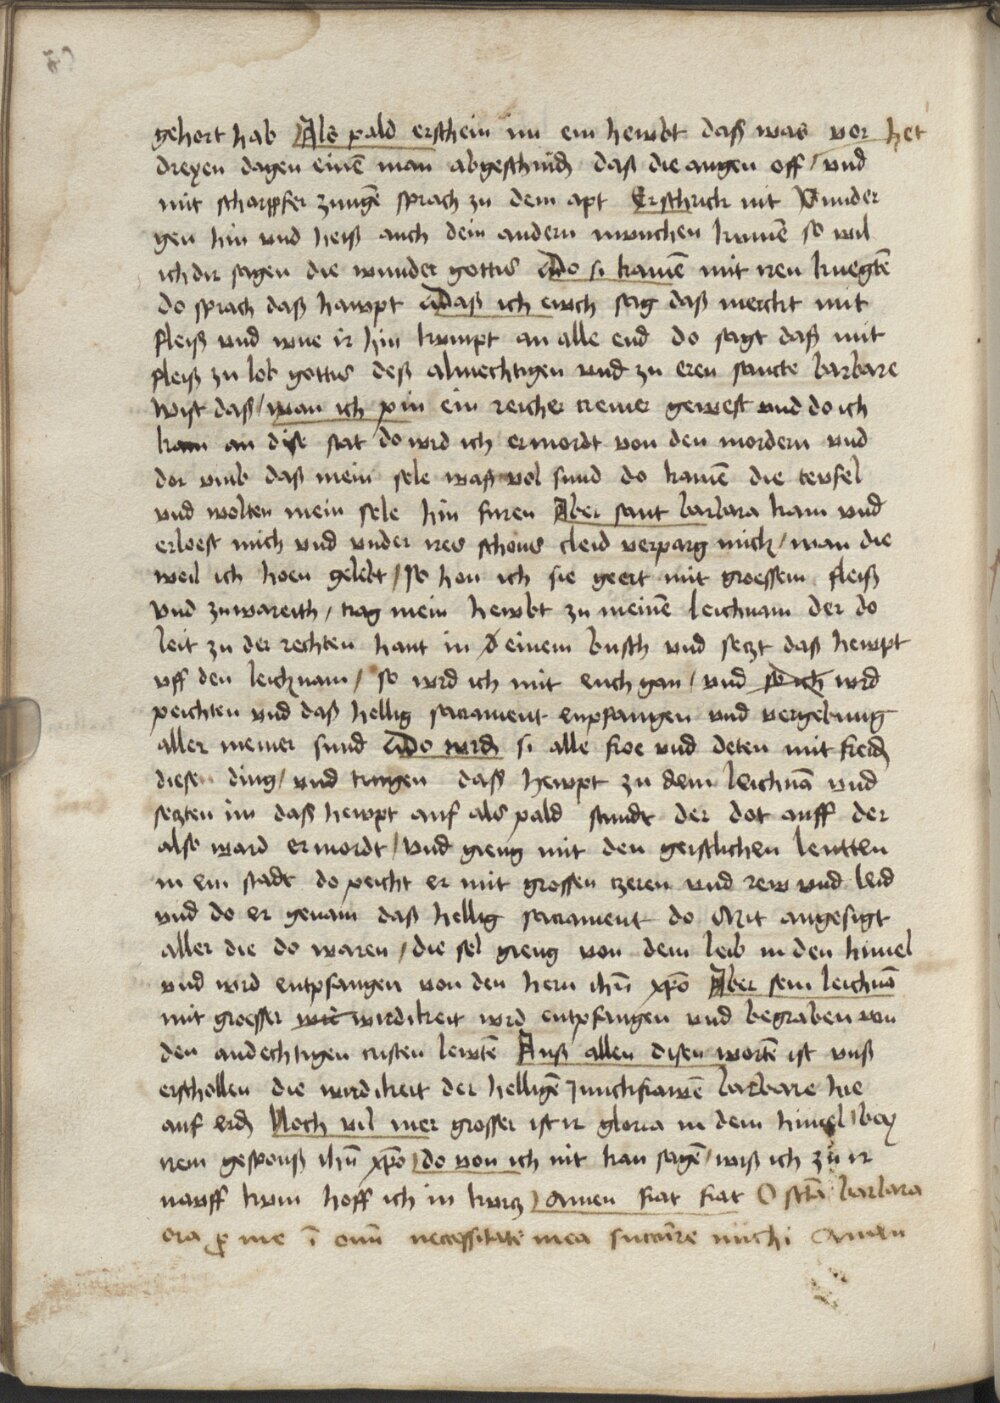 gehort hab Als pald erschein im ein hewbt daß was vor het
dreyen dagen einē man abgeschnidē daß die augen off / vnd
mit scharpfer zungē sprach zu dem apt Erschrick nit Sunder
gen hin vnd heiß auch dein andern munchen kumē so wil
ich dir sagen die wunder gottis Do si kamē mit iren knegtē
do sprach daß hawpt Daß ich ewch sag daß merckt mit
fleiß vnd wue ir hin kumpt an alle end do sagt daß mit
fleiß zu lob gottis deß almechtigen vnd zu eren sancte barbare
wist daß / wan ich pin ein reicher cremer gewest vnd do ich
kam an dise stat do wrd ich ermordt von den mordern vnd
dor vmb daß mein sele waß vol sund do kamē die tevfel
vnd wolten mein sele hin furen Aber sant barbara kam vnd
erloest mich vnd vnder ires schons cleid verparg mich / wan die
weil ich hoen gelebt / so hon ich sie geert mit groessem fleiß
vnd zuwareith / trag mein hewbt zu meinē leichnam der do
leit zu der rechten hant in d einem busch vnd seczt daß hewpt
vff den leichnam / so wrd ich mit euch gan / vnd so ich wrd
peichten vnd daß hellig sacrament enpfangen vnd vergebung
aller meiner sund Do wrdē si alle froe vnd deten mit freidē
diese ding / vnd trugen daß hewpt zu dem leichnā vnd
seczten im daß hewpt auf als pald stundt der dot auff der
also ward ermordt / vnd gieng mit den geistlichen leutten
in ein stadt do peicht er mit grossen czeren vnd rew vnd leid
vnd do er genam daß hellig sacrament do Mit angesigt
aller die do waren / die sel gieng von dem leib in den himel
vnd wrd entpfangen von den hern ihū xpō Aber sein leichnā
mit groesser wir wirdikeit wrd entpfangen vnd begraben von
den andechtigen cristen lewtē Auß allen disen wortē ist vnß
erschollen die wirdikeit der helligē Junckfrawē barbare hie
auf erdē Noch vil mer grosser ist ir gloria in dem himel bey
irem gesponß ihū xpō / do von ich nit kan sagē / wiß ich zu ir
nauff kum hoff ich in kurcz / Amen fiat fiat O sctā barbara
ora ꝓ me ī omī necessitate mea succurre michi Amen